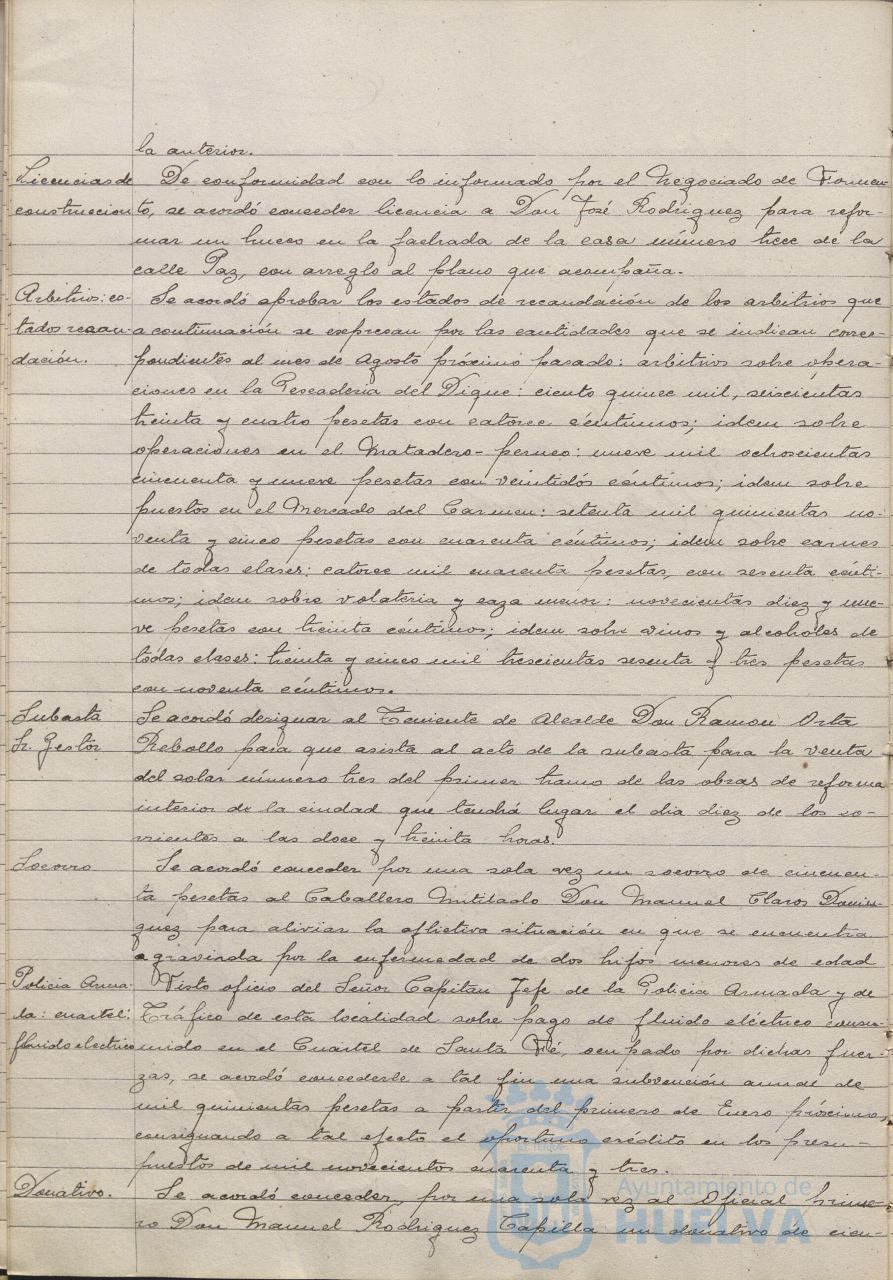 la anterior.
Licencias de
construccion
De conformidad con lo informado por el Negociado de Fomen-
to, se acordó conceder licencia a Don José Rodriguez para refor-
mar un hueco en la fachada de la casa número trece de la
calle Paz, con arreglo al plano que acompaña.
Arbitrios: es-
tados recau-
dación.
Se acordó aprobar los estados de recaudación de los arbitrios que
a continuación se expresan por las cantidades que se indican corres-
pondientes al mes de Agosto próximo pasado: arbitrios sobre opera-
ciones en la Pescaderia del Dique: ciento quince mil, seiscientas
treinta y cuatro pesetas con catorce céntimos; idem sobre
operaciones en el Matadero-perneo: nueve mil ochoscientas
cincuenta y nueve pesetas con veintidós céntimos; idem sobre
puestos en el Mercado del Carmen: setenta mil quinientas no-
venta y cinco pesetas con cuarenta céntimos; idem sobre carnes
de todas clases: catorce mil cuarenta pesetas, con sesenta cénti-
mos; idem sobre volateria y caza menor: novecientas diez y nue-
ve pesetas con treinta céntimos; idem sobre vinos y alcoholes de
todas clases: treinta y cinco mil trescientas sesenta y tres pesetas
con noventa céntimos.
Subasta
Sr. Gestor
Se acordó designar al Teniente de Alcalde Don Ramon Orta
Rebollo para que asista al acto de la subasta para la venta
del solar número tres del primer tramo de las obras de reforma
interior de la ciudad que tendrá lugar el dia diez de los co-
rrientes a las doce y treinta horas.
Socorro
Se acordó conceder por una sola vez un socorro de cincuen-
ta pesetas al Caballero Mutilado Don Manuel Claros Domin-
guez para aliviar la aflictiva situación en que se encuentra
agravinda por la enfermedad de dos hijos menores de edad
Policia Arma-
da: cuartel:
fluido electrico
Visto oficio del Señor Capitan Jefe de la Policia Armada y de
Tráfico de esta localidad sobre pago de fluido eléctrico consu-
mido en el Cuartel de Santa Fé, ocupado por dichas fuer-
zas, se acordó concederle a tal fin una subvención anual de
mil quinientas pesetas a partir del primero de Enero próximo,
consignando a tal efecto el oportuno crédito en los presu-
puestos de mil novecientos cuarenta y tres.
Donativo.
Se acordó conceder por una sola vez al Oficial prime-
ro Don Manuel Rodriguez Capilla un donativo de cien-
Ayuntamiento de
HUELVA